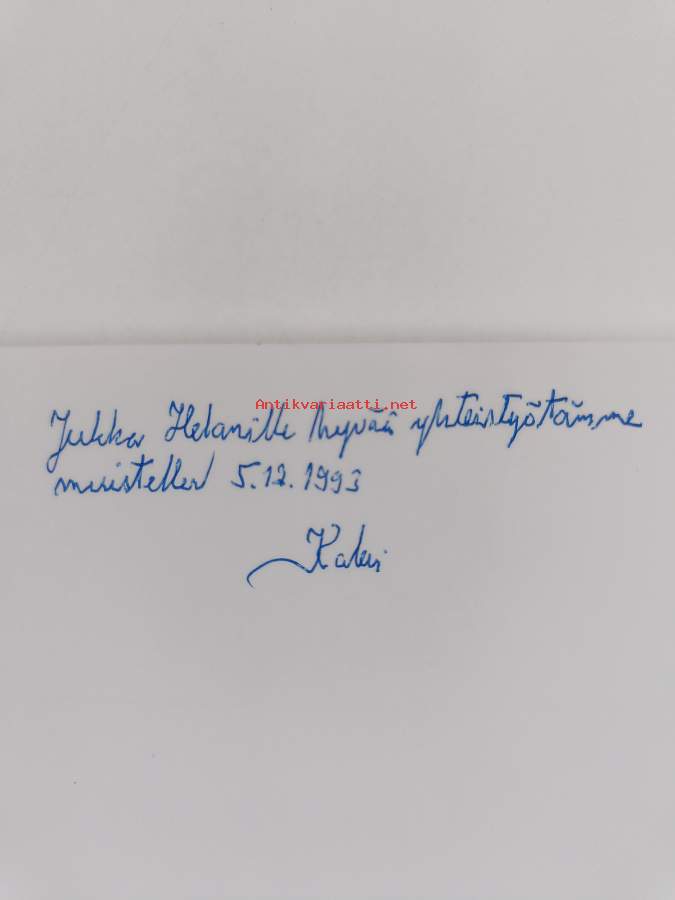 Antikvariaatti.net
Jukka Helanille hyvää yhteistyötämme
muistellen 5.12.1993
Kalevi